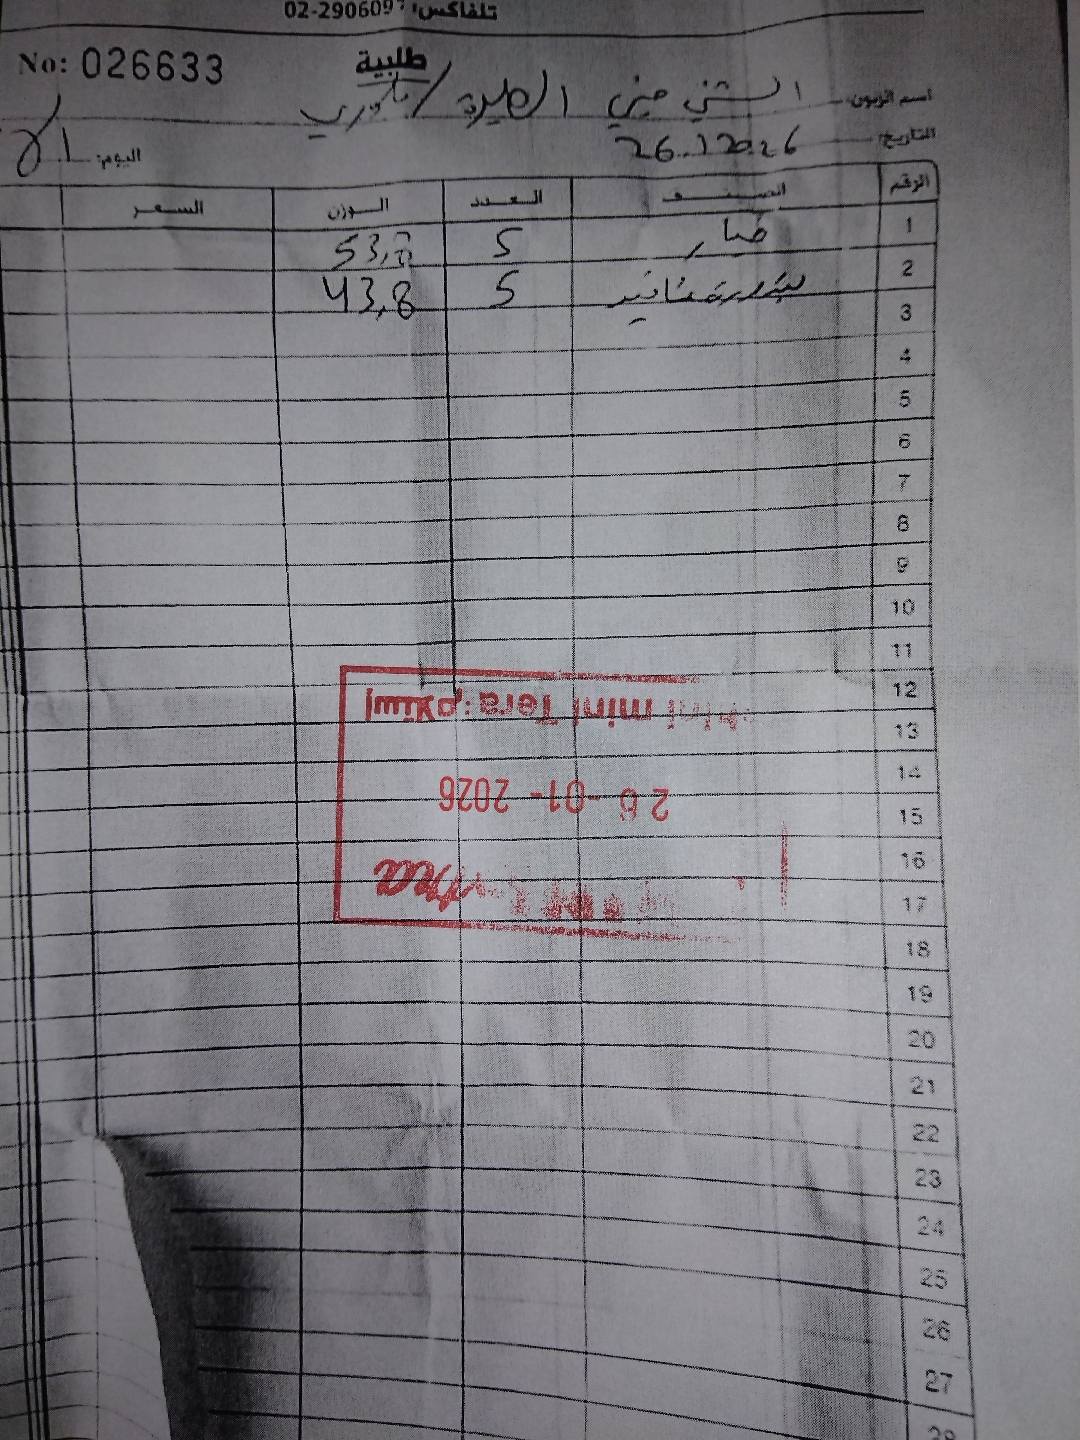 تلفاكس: 02-290609
No: 026633
طلبية
اسم الزبون: الشني ميني الطيرة /
التاريخ: 26.1.2026
اليوم:
الرقم الصنف العدد الوزن السعر
1 خيار 5 53,8
2 بندورة 5 43,8
3
4
5
6
7
8
9
10
11
12
13
14
15
16
17
18
19
20
21
22
23
24
25
26
27
28
mini Tera
26-01-2026